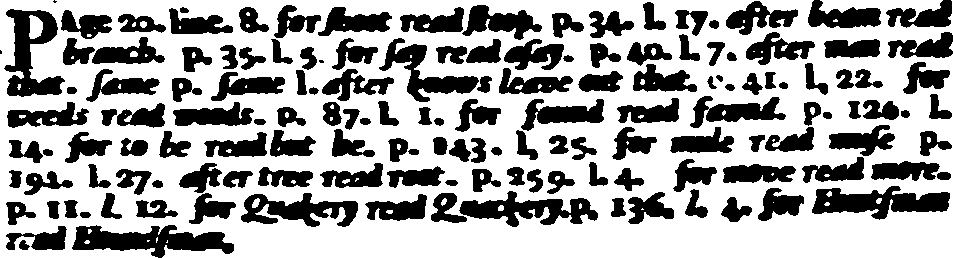 PAge 20. line. 8. for shoot read stoop. p. 34. l. 17. after beam read
branch. p. 35. l. 5. for say read assay. p. 40. l. 7. after man read
that. same p. same l. after knows leave out that. p. 41. l, 22. for
weeds read woods. p. 87. l. 1. for found read fawnd. p. 120. l.
14. for to be read but be. p. 143. l, 25. for mule read muse p.
192. l. 27. after tree read root. p. 259. l. 4. for move read more.
p. 11. l. 12. for Quakery read Quackery. p. 136. l. 4. for Huntsman
read Houndsman.